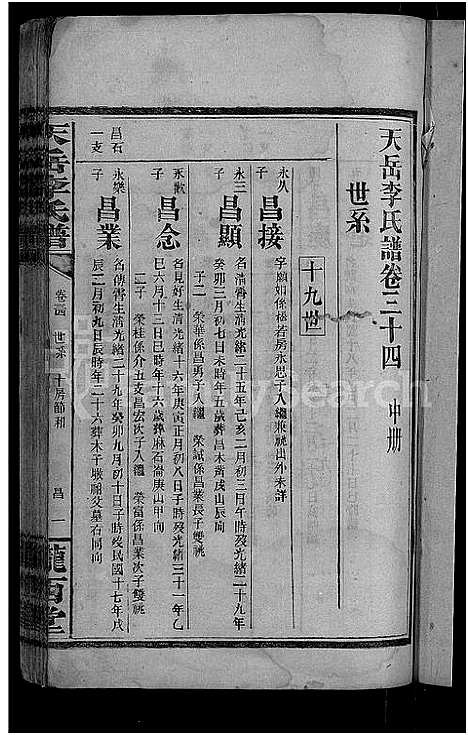 天岳李氏譜卷三十四 中册
世系
十九世
永八子
昌接
字願如係福若房永思子入繼兼祧出外未詳
永三子
昌顯
名清霄生清光緒二十五年己亥二月初三日午時歿光緒二十九年
癸卯三月初七日未時年五歲葬昌木黃戌山辰向
子二 榮華係昌勇子入繼 榮誠係昌業長子雙祧
永歡子
昌念
名見好生清光緒十六年庚寅正月初八日子時歿光緒三十一年乙
巳六月十三日巳時年十六歲葬麻石崙庚山甲向
二子 榮桂係介五支昌宏次子入繼 榮富係昌業次子雙祧
永樂子
昌業
名傳霄生清光緒二十九年癸卯九月初十日子時歿民國十七年戊
辰二月初九日辰時年二十六葬木干塅祖父墓右同向
昌石一支
天岳李氏譜
卷三十四 世系 十房節和
昌 一
隴西堂